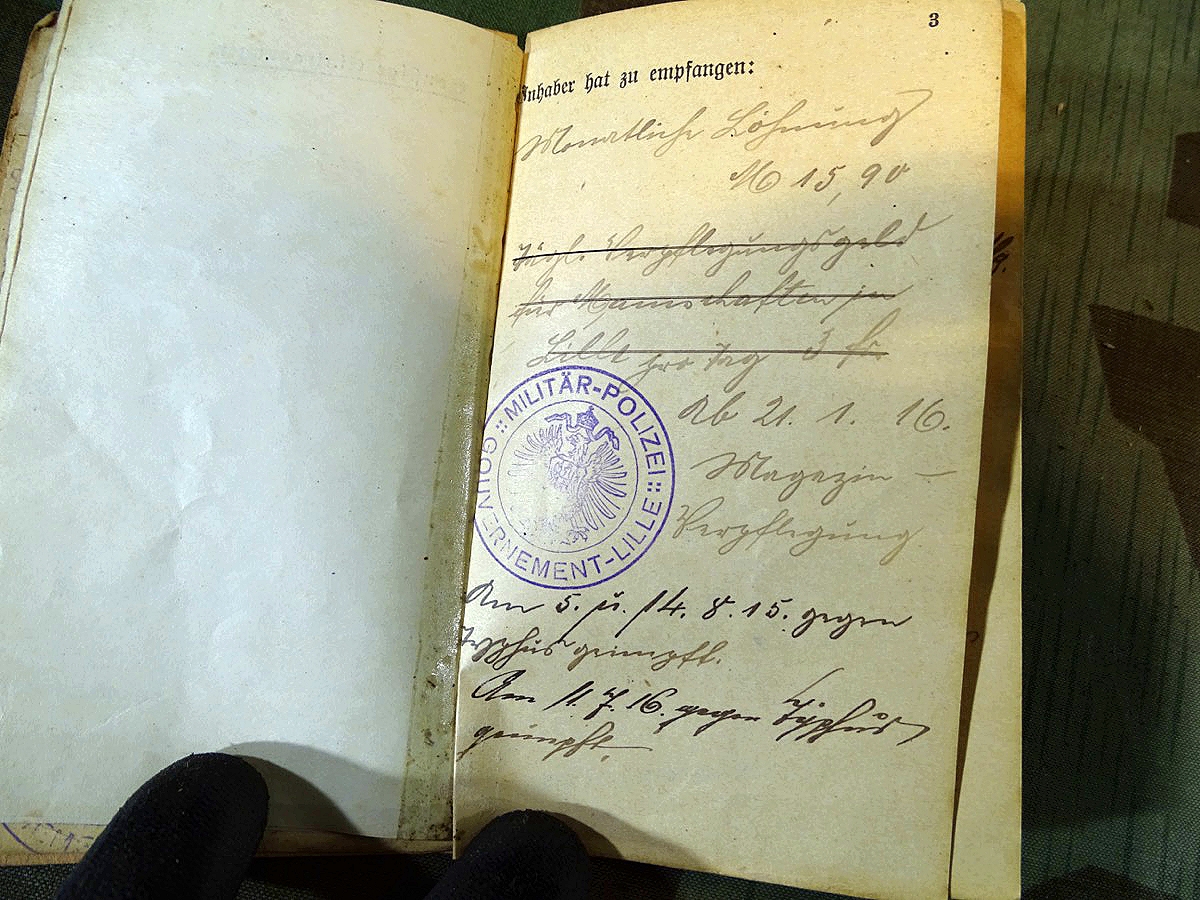 3
Inhaber hat zu empfangen:
Monatliche Löhnung
M 15,90
Tägl. Verpflegungsgeld
für Mannschaften in
Lille pro Tag 3 fr.
Ab 21. 1. 16.
Magazin-
Verpflegung
MILITÄR-POLIZEI :: GOUVERNEMENT-LILLE ::
Am 5. u. 14. 8. 15. gegen
Typhus geimpft.
Am 11. 7. 16. gegen Typhus
geimpft.